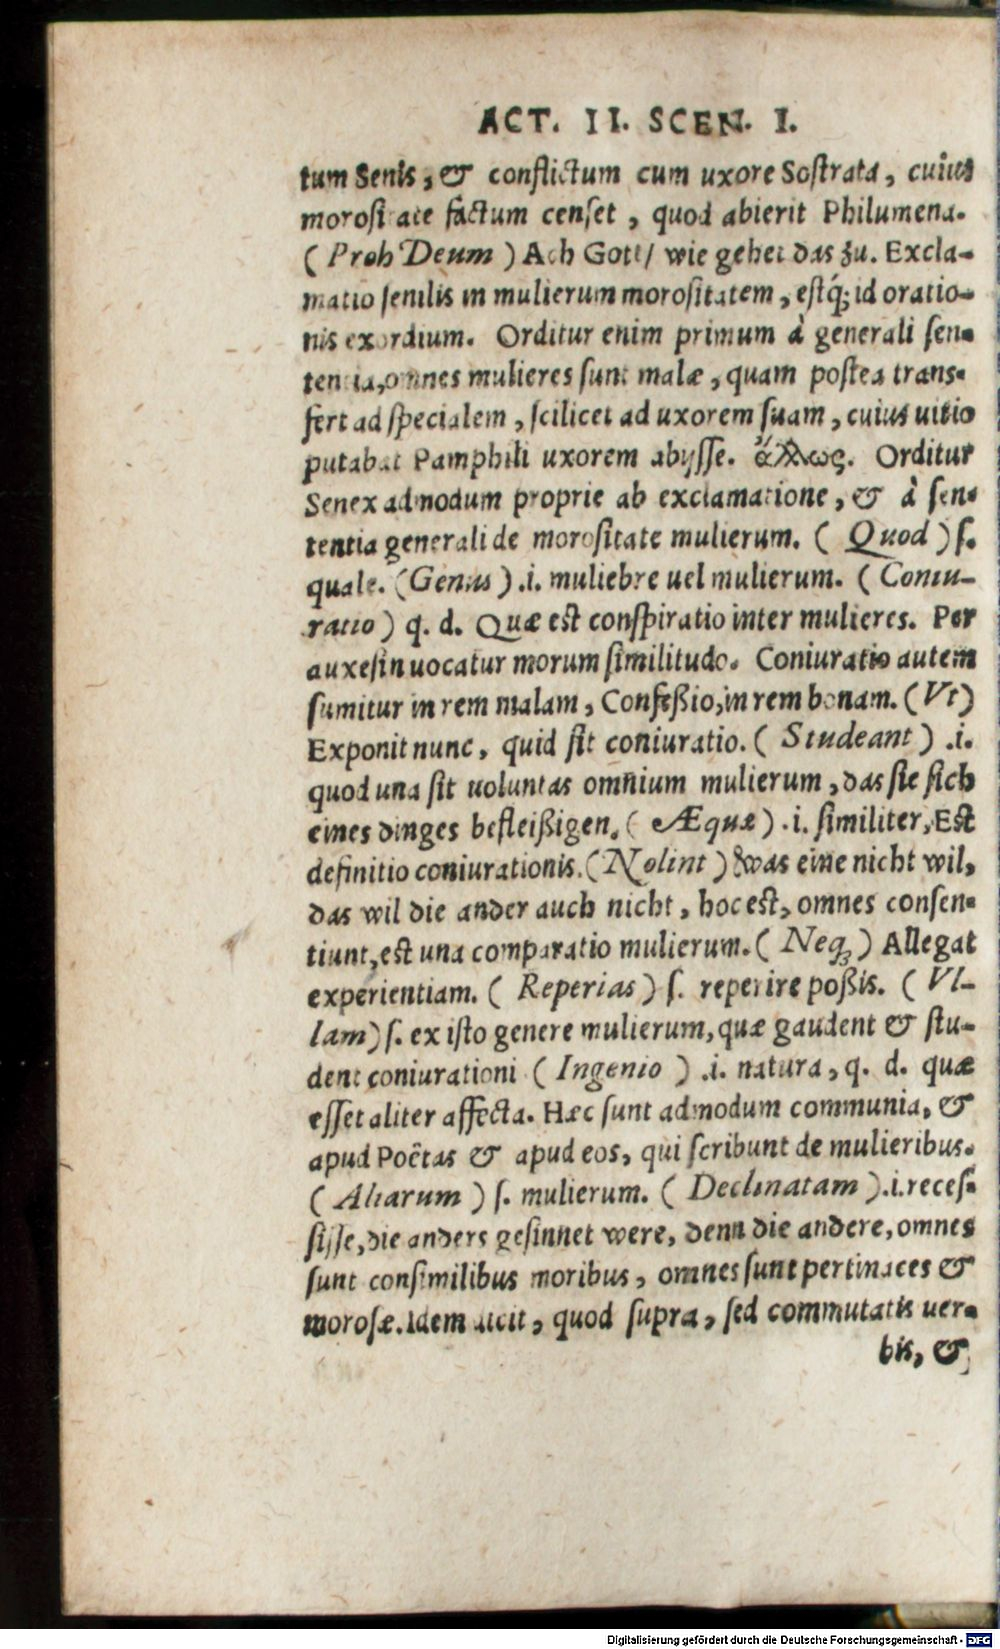 ACT. II. SCEN. I.
tum Senis, & conflictum cum uxore Sostrata, cuius
morositate factum censet, quod abierit Philumena.
(Proh Deum) Ach Gott/ wie gehet das zu. Excla-
matio senilis in mulierum morositatem, estq́; id oratio-
nis exordium. Orditur enim primum à generali sen-
tentia, omnes mulieres sunt malæ, quam postea trans-
fert ad specialem, scilicet ad uxorem suam, cuius uitio
putabat Pamphili uxorem abijsse. ἄλλως. Orditur
Senex admodum proprie ab exclamatione, & à sen-
tentia generali de morositate mulierum. (Quod) s.
quale. (Genus) .i. muliebre uel mulierum. (Coniu-
ratio) q. d. Quæ est conspiratio inter mulieres. Per
auxesin uocatur morum similitudo. Coniuratio autem
sumitur in rem malam, Confeßio, in rem bonam. (Vt)
Exponit nunc, quid sit coniuratio. (Studeant) .i.
quod una sit uoluntas omnium mulierum, das sie sich
eines dinges befleißigen. (Æquæ) .i. similiter, Est
definitio coniurationis. (Nolint) was eine nicht wil,
das wil die ander auch nicht, hoc est, omnes consen-
tiunt, est una comparatio mulierum. (Neqꝫ) Allegat
experientiam. (Reperias) s. reperire poßis. (Vl-
lam) s. ex isto genere mulierum, quæ gaudent & stu-
dent coniurationi (Ingenio) .i. natura, q. d. quæ
esset aliter affecta. Hæc sunt admodum communia, &
apud Poëtas & apud eos, qui scribunt de mulieribus.
(Aliarum) s. mulierum. (Declinatam) .i. reces-
sisse, die anders gesinnet were, denn die andere, omnes
sunt consimilibus moribus, omnes sunt pertinaces &
morosæ. Idem dicit, quod supra, sed commutatis uer-
bis, &
Digitalisierung gefördert durch die Deutsche Forschungsgemeinschaft - DFG